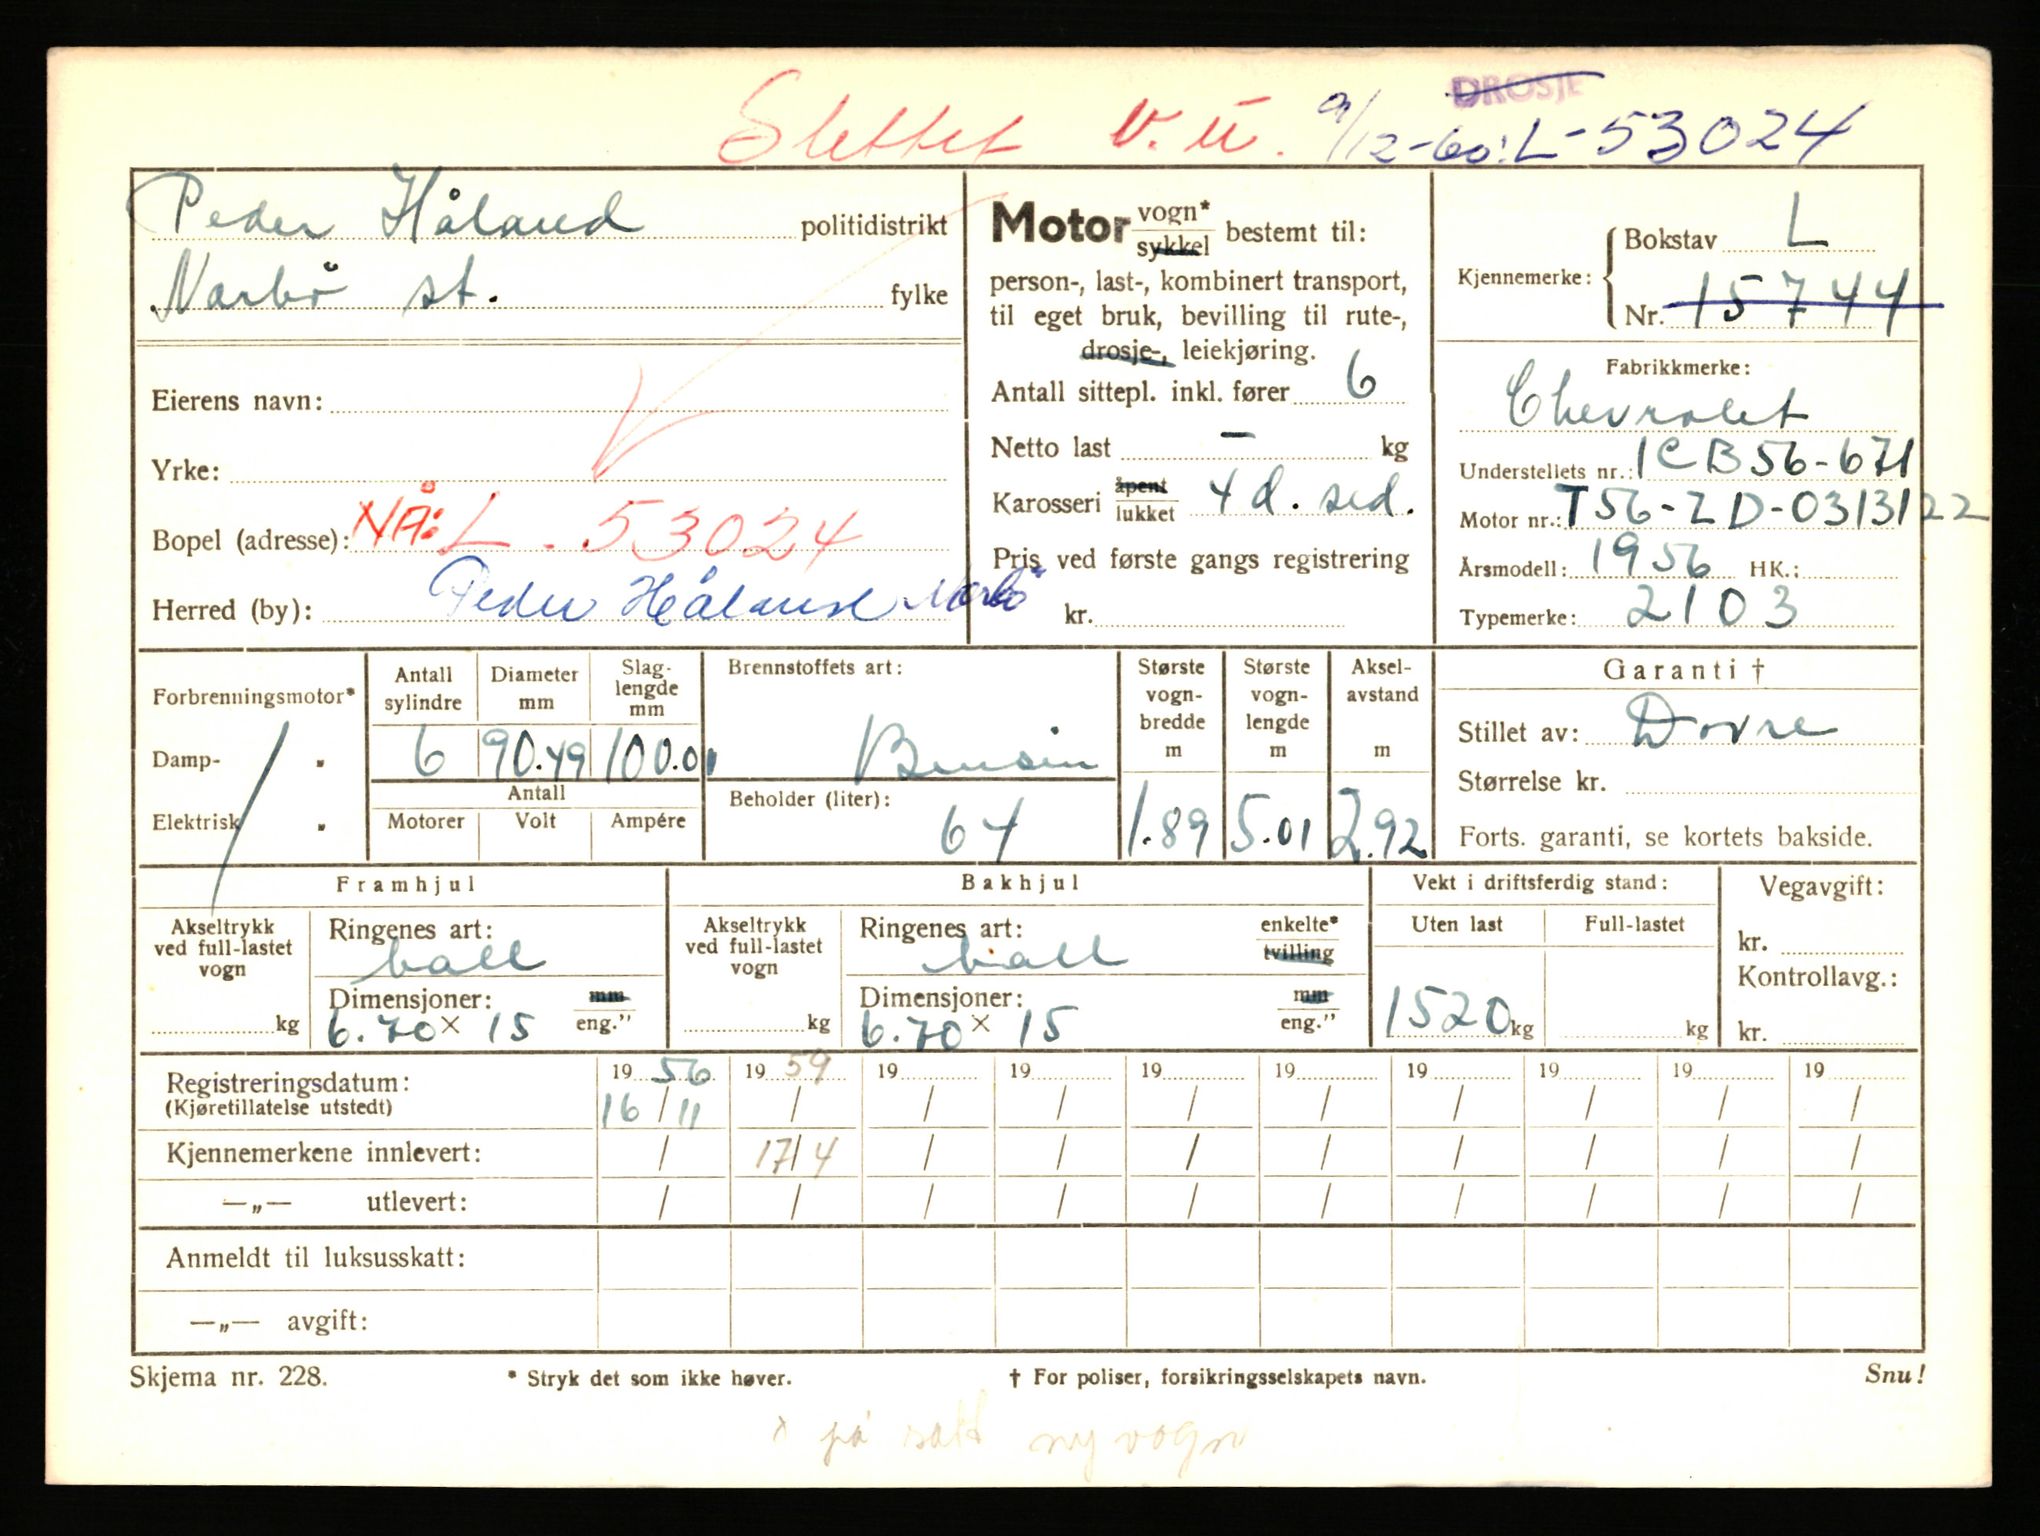 DROSJE
Slettet V. U. 9/12-60: L-53024
Peder Håland politidistrikt
Narbø st. fylke
Eierens navn:
Yrke:
Bopel (adresse): NÅ: L. 53024
Herred (by): Peder Håland Narbø
Motor vogn* sykkel bestemt til:
person-, last-, kombinert transport,
til eget bruk, bevilling til rute-,
drosje-, leiekjøring.
Antall sittepl. inkl. fører 6
Netto last — kg
Karosseri åpent lukket 4 d. sed.
Pris ved første gangs registrering
kr.
Kjennemerke: Bokstav L
Nr. 15744
Fabrikkmerke:
Chevrolet
Understellets nr.: 1CB56-671
Motor nr.: T56-ZD-0313122
Årsmodell: 1956 HK.:
Typemerke: 2103
Forbrenningsmotor*
Damp- "
Elektrisk "
Antall sylindre 6
Diameter mm 90.49
Slag-lengde mm 100.01
Antall
Motorer Volt Ampére
Brennstoffets art:
Bensin
Beholder (liter):
64
Største vogn-bredde m 1.89
Største vogn-lengde m 5.01
Aksel-avstand m 2.92
Garanti †
Stillet av: Dovre
Størrelse kr.
Forts. garanti, se kortets bakside.
Framhjul
Akseltrykk ved full-lastet vogn
kg
Ringenes art:
ball
Dimensjoner: mm
6.70 x 15 eng."
Bakhjul
Akseltrykk ved full-lastet vogn
kg
Ringenes art: enkelte*
ball tvilling
Dimensjoner: mm
6.70 x 15 eng."
Vekt i driftsferdig stand:
Uten last Full-lastet
1520 kg kg
Vegavgift:
kr.
Kontrollavg.:
kr.
Registreringsdatum: 19 56 19 59 19 19 19 19 19 19 19 19
(Kjøretillatelse utstedt) 16/11 / / / / / / / / /
Kjennemerkene innlevert: / 17/4 / / / / / / / /
—„— utlevert: / / / / / / / / / /
Anmeldt til luksusskatt:
—„— avgift:
Skjema nr. 228. * Stryk det som ikke høver. † For poliser, forsikringsselskapets navn. Snu!
x på satt ny vogn